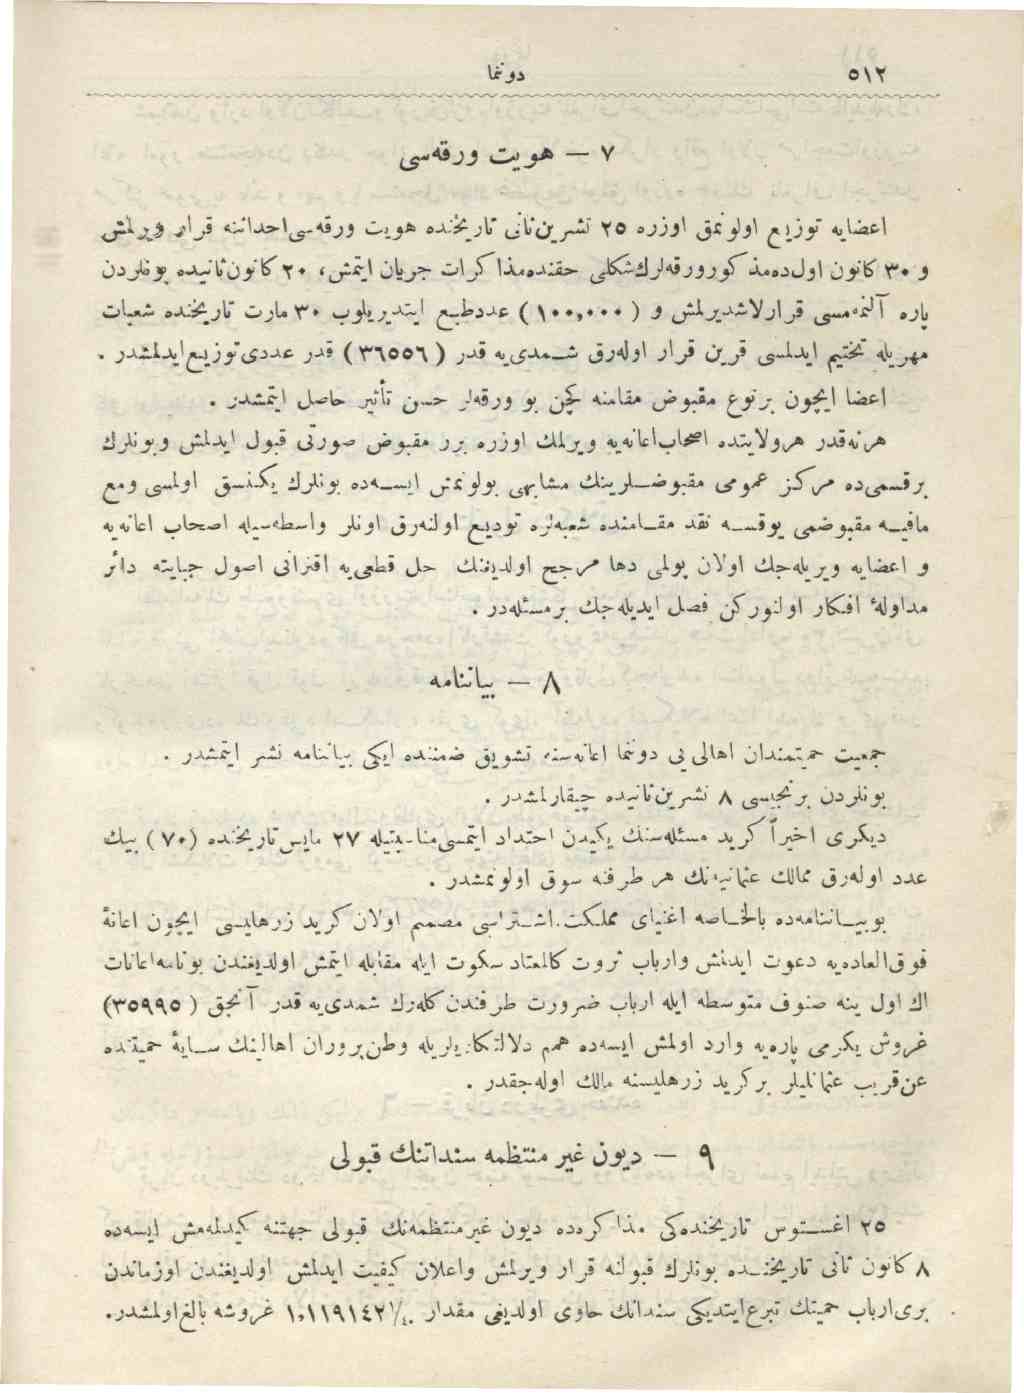 ٥١٢
دونما
٧ — هويت ورقه‌سی
اعضايه توزيع اولونمق اوزره ٢٥ تشرين‌ثانی تاريخنده هويت ورقه‌سی‌احداثنه قرار ويرلمش
و ٣٠ كانون اول‌ده‌مذكورورقه‌لرك‌شكلی حقنده‌مذاكرات جريان ايتمش، ٢٠ كانون‌ثانيده بونلردن
پاره آلنمه‌مسی قرارلاشديرلمش و ( ١٠٠,٠٠٠ ) عددطبع ايتديريلوب ٣٠ مارت تاريخنده شعبات
مهريله تختيم ايدلمسی قرين قرار اوله‌رق شــمدی‌يه قدر ( ٣٦٥٥٦ ) قدر عددی‌توزيع‌ايدلمشدر .
اعضا ايچون برنوع مقبوض مقامنه كچن بو ورقه‌لر حسن تأثير حاصل ايتمشدر .
هرنه‌قدر هرولايتده اصحاب‌اعانه‌يه ويرلمك اوزره برر مقبوض صورتی قبول ايدلمش وبونلرك
برقسمی‌ده مركز عمومی مقبوضــلرينك مشابهی بولونمش ايســه‌ده بونلرك يكنسق اولمسی ومع
مافيــه مقبوضمی يوقســه نقد مقــامنده شعبه‌لره توديع اولنه‌رق اونلر واسطه‌سيله اصحاب اعانه‌يه
و اعضايه ويريله‌جك اولان پولمی دها مرجح اولديغنك حل قطعی‌يه اقترانی اصول جبايته دائر
مداولۀ افكار اولنوركن فصل ايديله‌جك برمسئله‌در .
٨ — بياننامه
جمعيت حميتمندان اهالی‌يی دونما اعانه‌سنه تشويق ضمننده ايكی بياننامه نشر ايتمشدر .
بونلردن برنجيسی ٨ تشرين‌ثانيده چيقارلمشدر .
ديكری اخيراً كريد مسئله‌سنك يكيدن احتداد ايتمسی‌مناسبتيله ٢٧ مايس‌تاريخنده (٧٠) بيك
عدد اوله‌رق ممالك عثمانيه‌نك هر طرفنه سوق اولونمشدر .
بوبيــاننامه‌ده بالخــاصه اغنيای مملكت اشــتراسی مصمم اولان كريد زرهليسی ايچون اعانۀ
فوق‌العاده‌يه دعوت ايدلمش وارباب ثروت كالمعتاد سكوت ايله مقابله ايتمش اولديغندن بونامه‌اعانات
اك اول ينه صنوف متوسطه ايله ارباب ضرورت طرفندن كله‌رك شمدی‌يه قدر آنجق ( ٣٥٩٩٥)
غروش يكرمی پاره‌يه وارد اولمش ايسه‌ده همم دلالتكاريلريله وطن‌پروران اهالينك ســايۀ حميتنده
عن‌قريب عثمانليلر بركريد زرهليسنه مالك اوله‌جقدر .
٩ — ديون غير منتظمه سنداتنك قبولی
٢٥ اغســتوس تاريخنده‌كی مذاكره‌ده ديون غيرمنتظمه‌نك قبولی جهتنه كيدلمه‌مش ايسه‌ده
٨ كانون ثانی تاريخنــده بونلرك قبولنه قرار ويرلمش واعلان كيفيت ايدلمش اولديغندن اوزماندن
بری‌ارباب حميتك تبرع‌ايتديكی سنداتك حاوی اولديغی مقدار ١,١١٩١٤٢ غروشه بالغ‌اولمشدر.